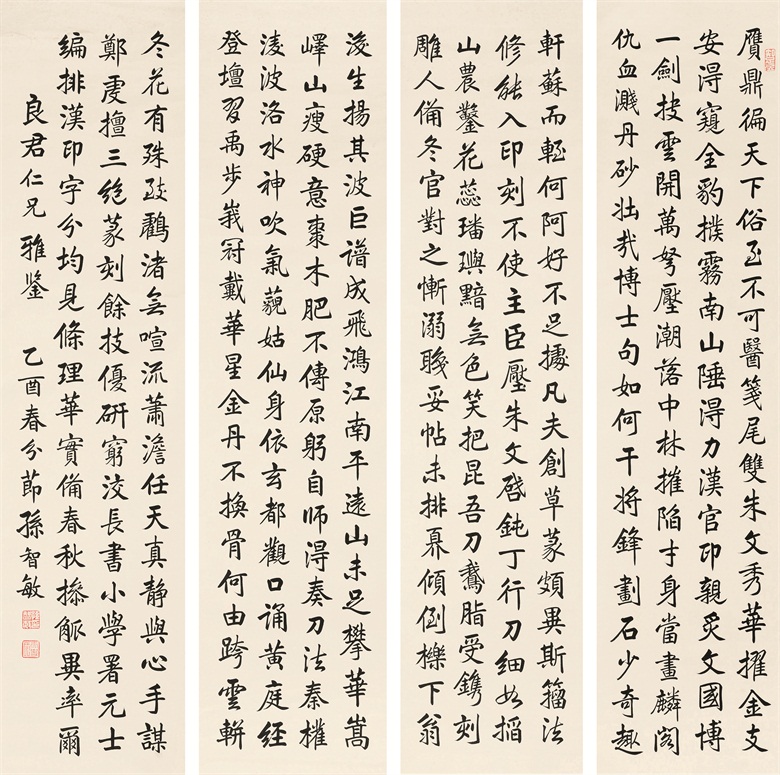 贋鼎徧天下俗至不可醫箋尾雙朱文秀華擢金支
安得窺全豹撲霧南山陲得力漢官印親炙文國博
一劍抉雲開萬弩壓潮落中林摧陷才身當畫麟閣
仇血濺丹砂壯哉博士句如何干將鋒劃石少奇趣
軒蘇而輊何阿好不足據凡夫創草篆頗異斯籀法
修能入印刻不使主臣壓朱文啓鈍丁行刀細如掐
山農鑿花蕊璠璵黯無色笑把昆吾刀鵞脂受鐫刻
雕人備冬官對之慚溺職妥帖未排奡傾倒櫟下翁
後生揚其波巨譜成飛鴻江南平遠山未足攀華嵩
嶧山瘦硬意棗木肥不傳原躬自師得奏刀法秦權
淩波洛水神吹氣藐姑仙身依玄都觀口誦黃庭經
登壇習禹步峩冠戴華星金丹不換骨何由跨雲軿
冬花有殊致鸛渚無喧流蕭澹任天真靜與心手謀
鄭虔擅三絕篆刻餘技優研窮洨長書小學署元士
編排漢印字分均見條理華實備春秋摻觚異率爾
良君仁兄雅鉴 乙酉春分節孫智敏